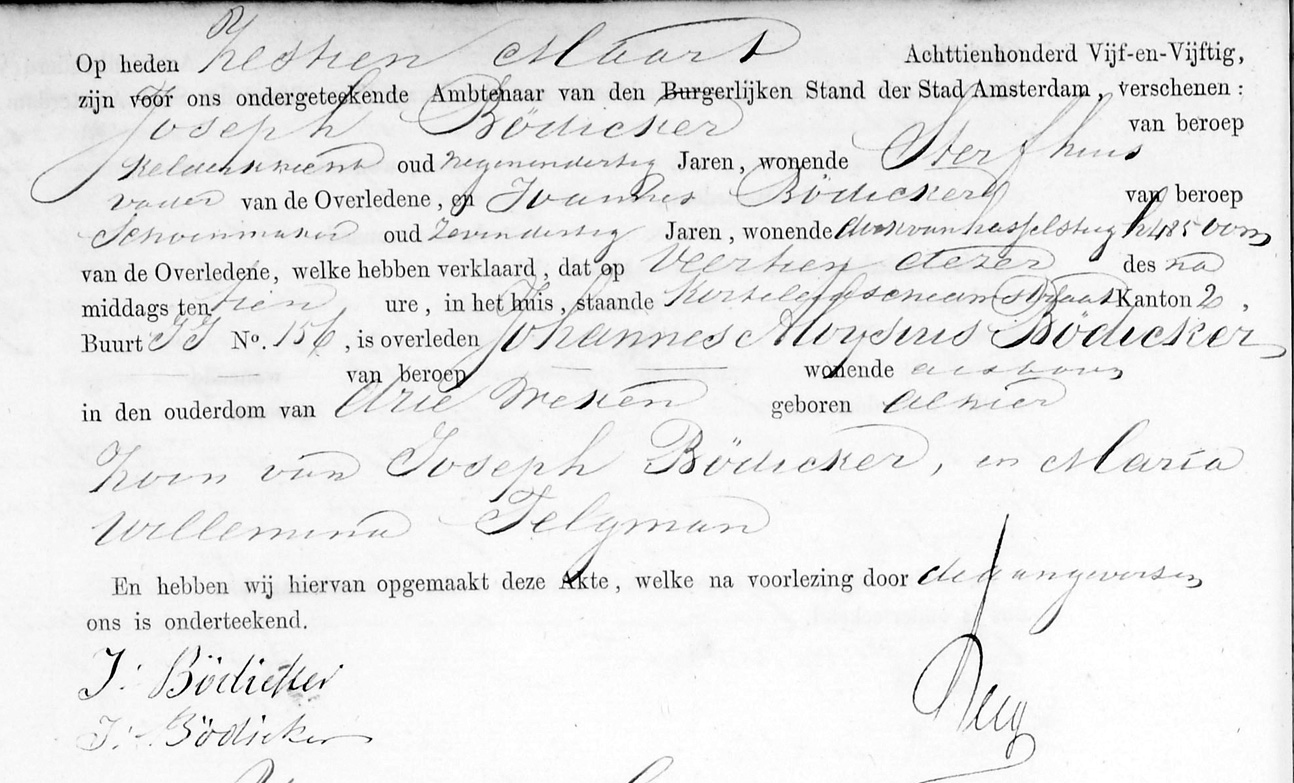 Op heden Zestien Maart Achttienhonderd Vijf-en-Vijftig,
zijn voor ons ondergeteekende Ambtenaar van den Burgerlijken Stand der Stad Amsterdam, verschenen:
Joseph Bödicker van beroep
Kelderknecht oud negenendertig Jaren, wonende Sterfhuis
vader van de Overledene, en Joannes Bödicker van beroep
Schoenmaker oud Zevendertig Jaren, wonende Dirkvanhasseltsteeg h 485 oom
van de Overledene, welke hebben verklaard, dat op Veertien dezer des na
middags ten tien ure, in het huis, staande Korte Kanton 2,
Buurt JJ No. 156, is overleden Johannes Aloysius Bödicker
van beroep wonende aldaar
in den ouderdom van Drie Weken geboren alhier
Zoon van Joseph Bödicker, en Maria
Willemina Telgman
En hebben wij hiervan opgemaakt deze Akte, welke na voorlezing door de aangevers en
ons is onderteekend.
J. Bödicker
J. Bödicker